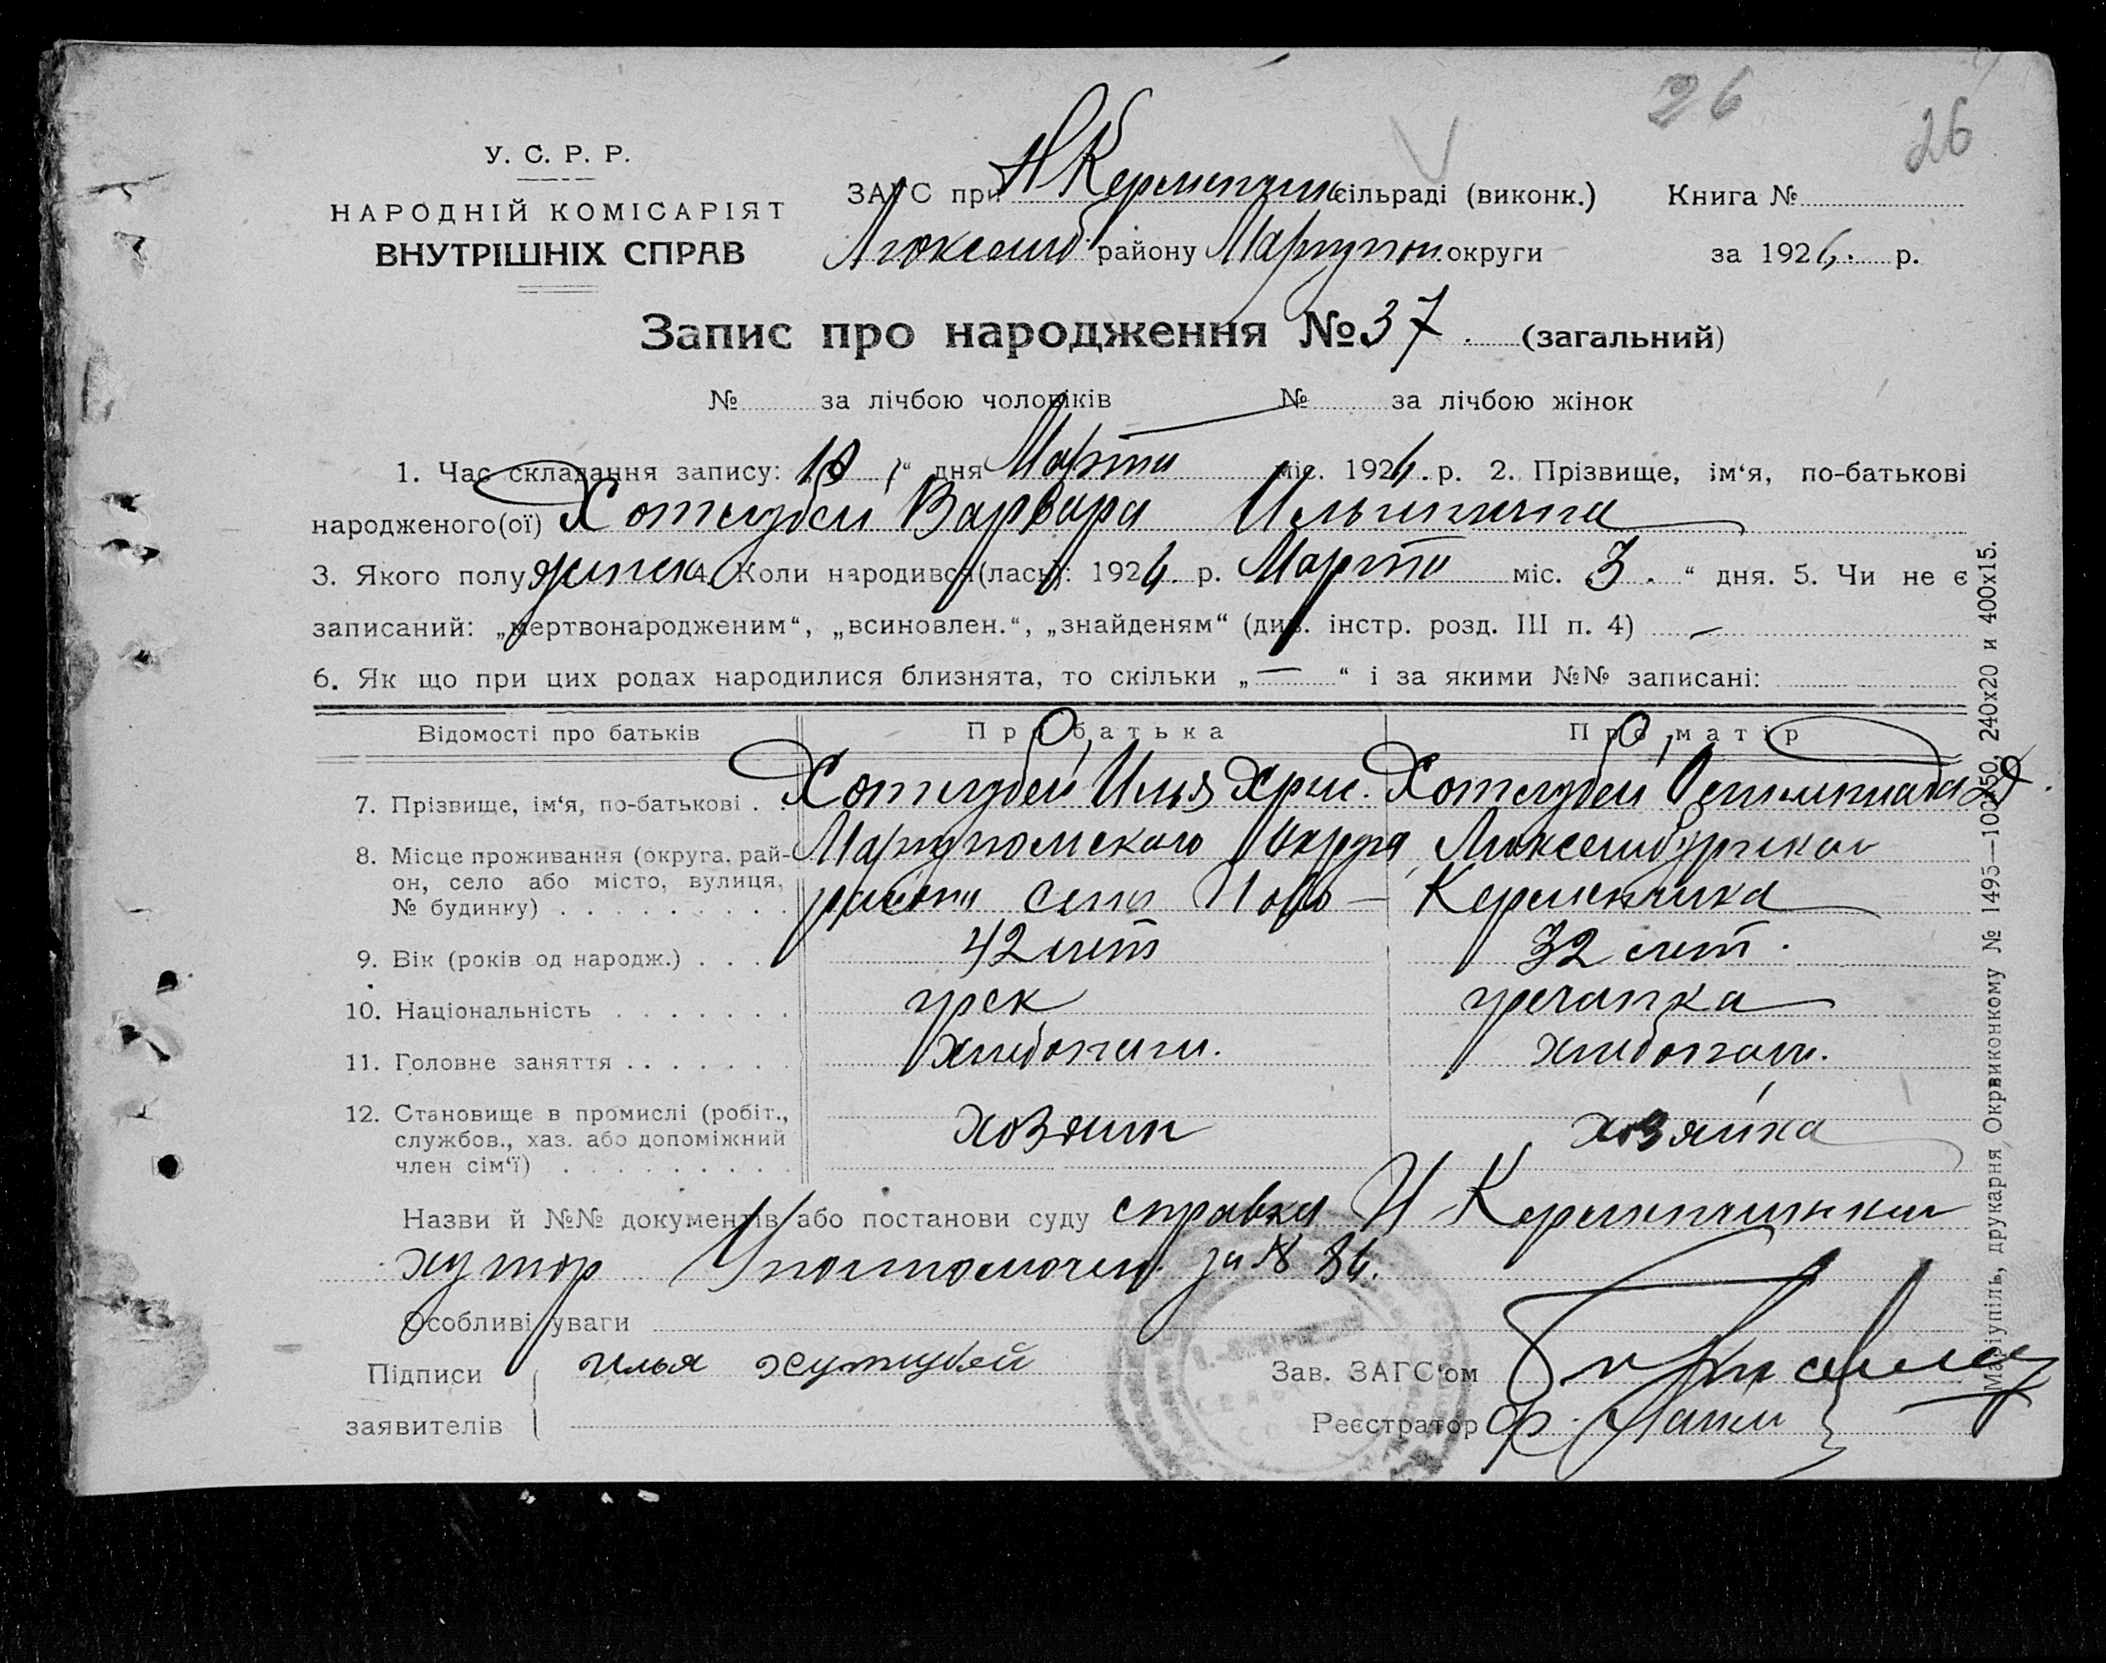 26
26
У. С. Р. Р.
НАРОДНІЙ КОМІСАРІЯТ
ВНУТРІШНІХ СПРАВ
ЗАГС при Н Керменчик сільраді (виконк.) Книга №
Люксемб. району Мариупол округи за 1926. р.
Запис про народження № 37 (загальний)
№ за лічбою чоловіків № за лічбою жінок
1. Час складання запису: 10 “ дня Марта міс. 1926. р. 2. Прізвище, ім‘я, по-батькові
народженого(ої) Хотлубей Варвара Ильинична
3. Якого полу женск 4. Коли народився(лась): 1926. р. Марта міс. 3. “ дня. 5. Чи не є
записаний: „мертвонародженим“, „всиновлен.“, „знайденям“ (див. інстр. розд. III п. 4) —
6. Як що при цих родах народилися близнята, то скільки „—“ і за якими №№ записані:
Відомості про батьків Про батька Про матір
7. Прізвище, ім‘я, по-батькові . Хотлубей Илья Хрис. Хотлубей
8. Місце проживання (округа, рай-
он, село або місто, вулиця,
№ будинку) . . . . . . . . .
Мариупольского округа, Люксембургскаго
района села Ново-Керменчика
9. Вік (років од народж.) . . . 42 лет 32 лет.
10. Національність . . . . . . . грек гречанка
11. Головне заняття . . . . . . . хлебопаш. хлебопаш.
12. Становище в промислі (робіт.,
службов., хаз. або допоміжний
член сім‘ї) . . . . . . . . .
хозяин хозяйка
Назви й №№ документів або постанови суду справка Н-Керменчикска
хутор Уполномочен. за № 34.
Особливі уваги
Підписи Илья Хутлубей Зав. ЗАГС‘ом
заявителів Реєстратор
Маріупіль, друкарня Окрвиконкому № 1495—100х50, 240х20 и 400х15.